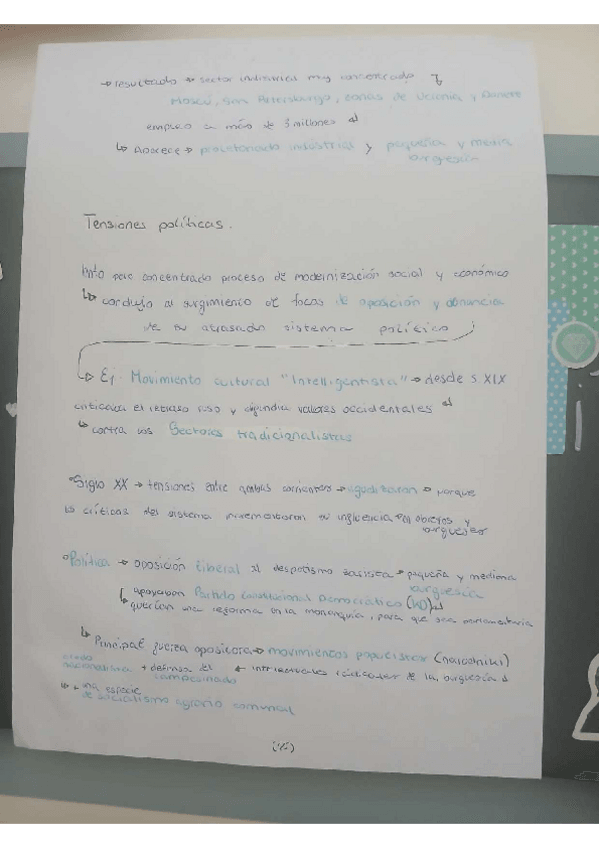 → resultado → sector industrial muy concentrado
Moscú, San Petersburgo, zonas de Ucrania y Donets
empleo a más de 3 millones
↳ Aparece → proletariado industrial y pequeña y media
burgesía
Tensiones políticas.
concentrado proceso de modernización social y económico
↳ condujo al surgimiento de focos de oposición y denuncia
de su atrasado sistema político
↳ Ej. Movimiento cultural "Intelligentista" → desde s. XIX
criticaba el retraso ruso y defendía valores occidentales
↳ contra los Sectores tradicionalistas
°Siglo XX → tensiones entre ambas corrientes → agudizaron → porque
las críticas del sistema incrementaron su influencia en obreros y
burgueses
°Política → oposición liberal al despotismo zarista → pequeña y mediana
burgesía
↳ apoyaban Partido Constitucional Democrático (KD)
querían una reforma en la monarquía, para que sea parlamentaria
↳ Principal fuerza opositora → movimientos populistas (narodniki)
nacionalista + defensa del ← intelectuales radicales de la burguesía
campesinado
↳ + una especie
de socialismo agrario comunal